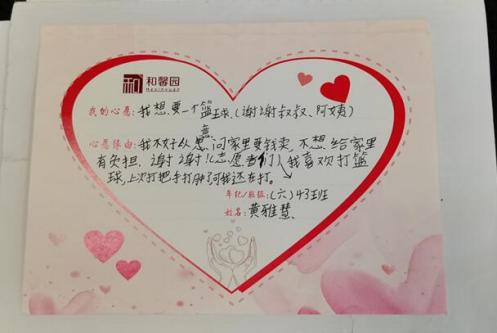 和馨园
Hexinyuan
我的心愿:我想要一个篮球,(谢谢叔叔、阿姨)
意
心愿缘由:我不好从思问家里要钱卖,不想给家里
有负担,谢谢!(志愿者们)我喜欢打篮
球,上次打把手打肿了我还在打。
年纪/班级:(六)43班
姓名:黄雅慧